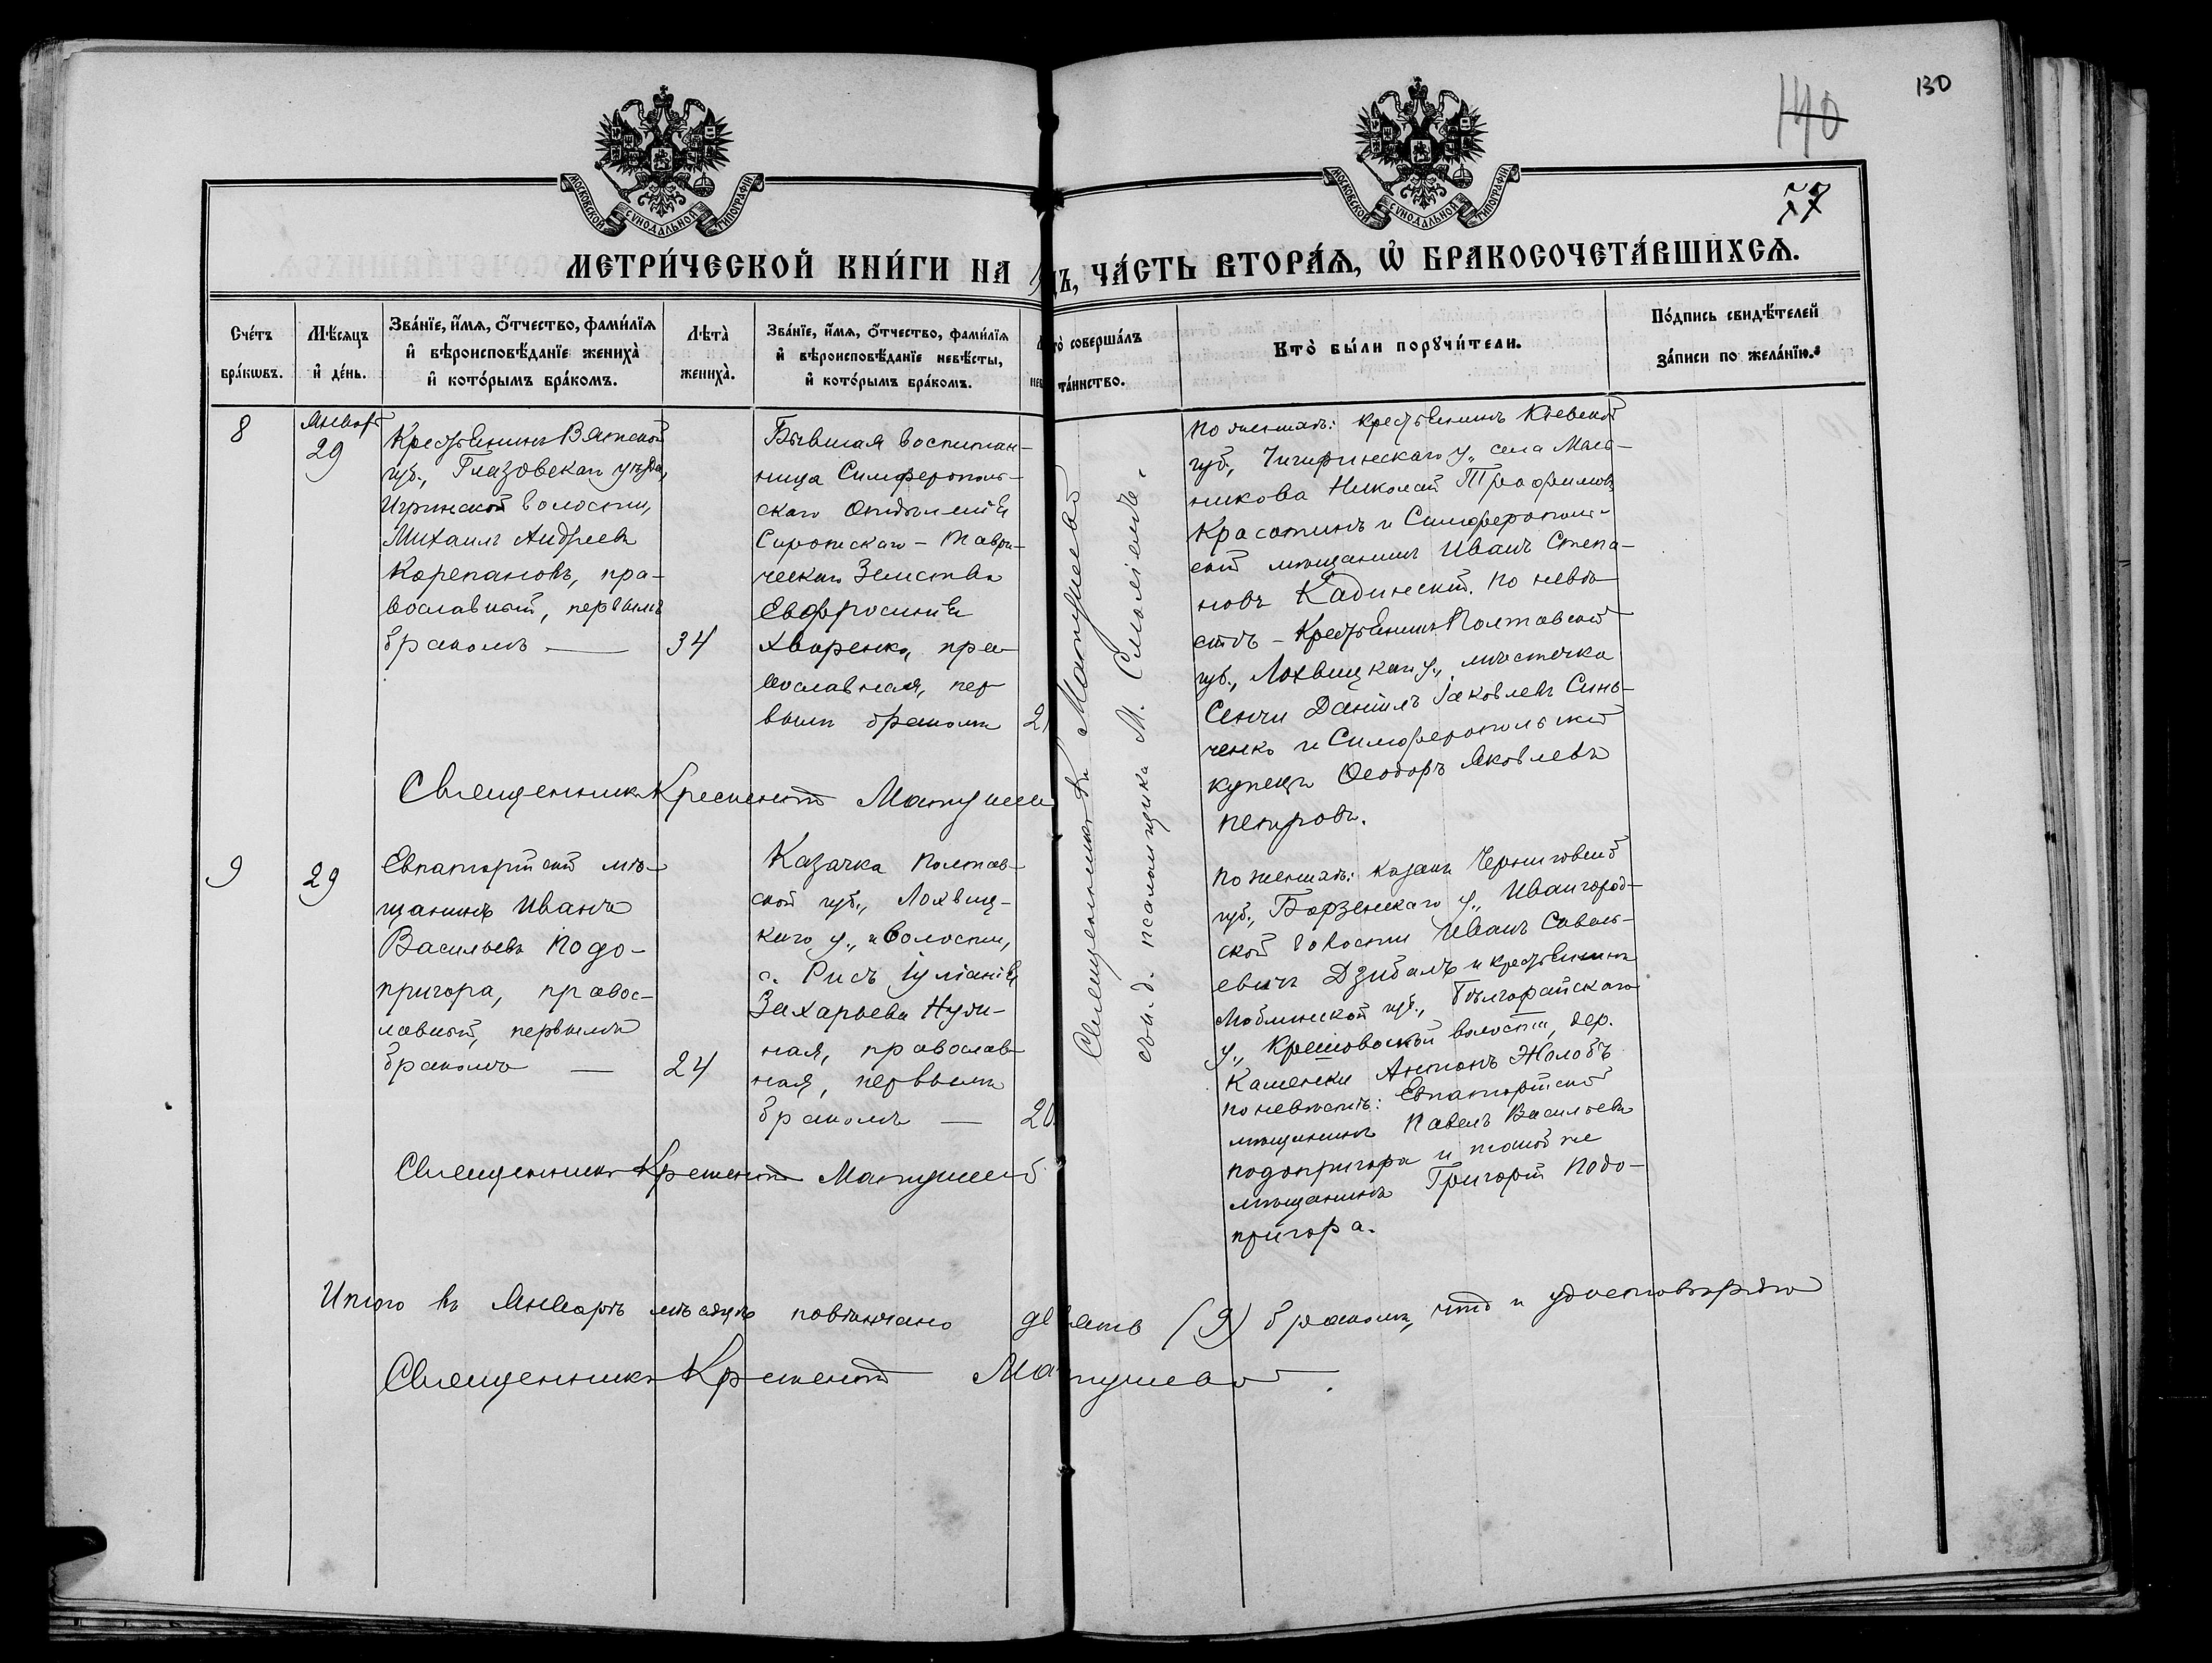 130
140
77
МОСКОВСКОЙ СѴНОДАЛЬНОЙ ТИПОГРАФІИ
МОСКОВСКОЙ СѴНОДАЛЬНОЙ ТИПОГРАФІИ
МЕТРИ́ЧЕСКОЙ КНИ́ГИ НА
ДЪ, ЧА́СТЬ ВТОРА́Ѧ, Ѡ҆ БРАКОСОЧЕТА́ВШИХСѦ.
Сче́тъ
бра́кѡвъ.
Мѣ́сяцъ
и҆ де́нь.
Зва́нїе, и҆́мѧ, ѻ҆́тчество, фами́лїѧ
и҆ вѣроисповѣ́данїе жениха̀
и҆ кото́рымъ бра́комъ.
Лѣта̀
жениха̀.
Зва́нїе, и҆́мѧ, ѻ҆́тчество, фами́лїѧ
и҆ вѣроисповѣ́данїе невѣ́сты,
и҆ кото́рымъ бра́комъ.
то̀ соверша́лъ
та́инство.
Кто̀ бы́ли порꙋчи́тели.
По́дпись свидѣ́телей
за́писи по жела́нїю.
8
Январь
29
Крестьянинъ Вятской
губ., Глазовскаго уѣзда,
Игринской волости,
Михаилъ Андреевъ
Корепановъ, пра-
вославный, первымъ
бракомъ —
34
Бывшая воспитан-
ница Симферополь-
скаго Отдѣленія
Сиротскаго - Таври-
ческаго Земства
Евфросинія
Хворенко, пра-
вославная, пер
вымъ бракомъ
2
Священникъ Крескентъ Матушев
Священникъ К. Матушевъ
съ и. д. псаломщика М. Смоліемъ.
По женихѣ: крестьянинъ Кіевской
губ., Чигиринскаго у., села Мель-
никова Николай Трофимовъ
Красотинъ и Симферополь-
скій мѣщанинъ Иванъ Степа-
новъ Кадинскій. По невѣ-
стѣ - Крестьянинъ Полтавской
губ., Лохвицкаго у., мѣстечка
Сенчи Даніилъ Іаковлевъ Синь-
ченко и Симферопольскій
купецъ Ѳеодоръ Яковлевъ
Петровъ.
9
29
Евпаторійскій мѣ-
щанинъ Иванъ
Васильевъ Подо-
пригора, правос-
лавный, первымъ
бракомъ —
24
Казачка Полтав-
ской губ., Лохвиц-
каго у., и волости,
с. Рисъ Іуліанія
Захарьева Нуж-
ная, православ-
ная, первымъ
бракомъ —
20
Священникъ Крескентъ Матушевъ
По женихѣ: казакъ Черниговской
губ., Борзенскаго у., Ивангород-
ской волости Иванъ Савель-
евичъ Дзибалъ и крестьянинъ
Люблинской губ., Бѣлгорайскаго
у., Крешовской волости, дер.
Каменки Антонъ Жолобъ
По невѣстѣ: Евпаторійскій
мѣщанинъ Павелъ Васильевъ
Подопригора и такой же
мѣщанинъ Григорій Подо-
пригора.
Итого въ Январѣ мѣсяцѣ повѣнчано девять (9) браковъ, что и удостовѣряю
Священникъ Крескентъ Матушевъ.